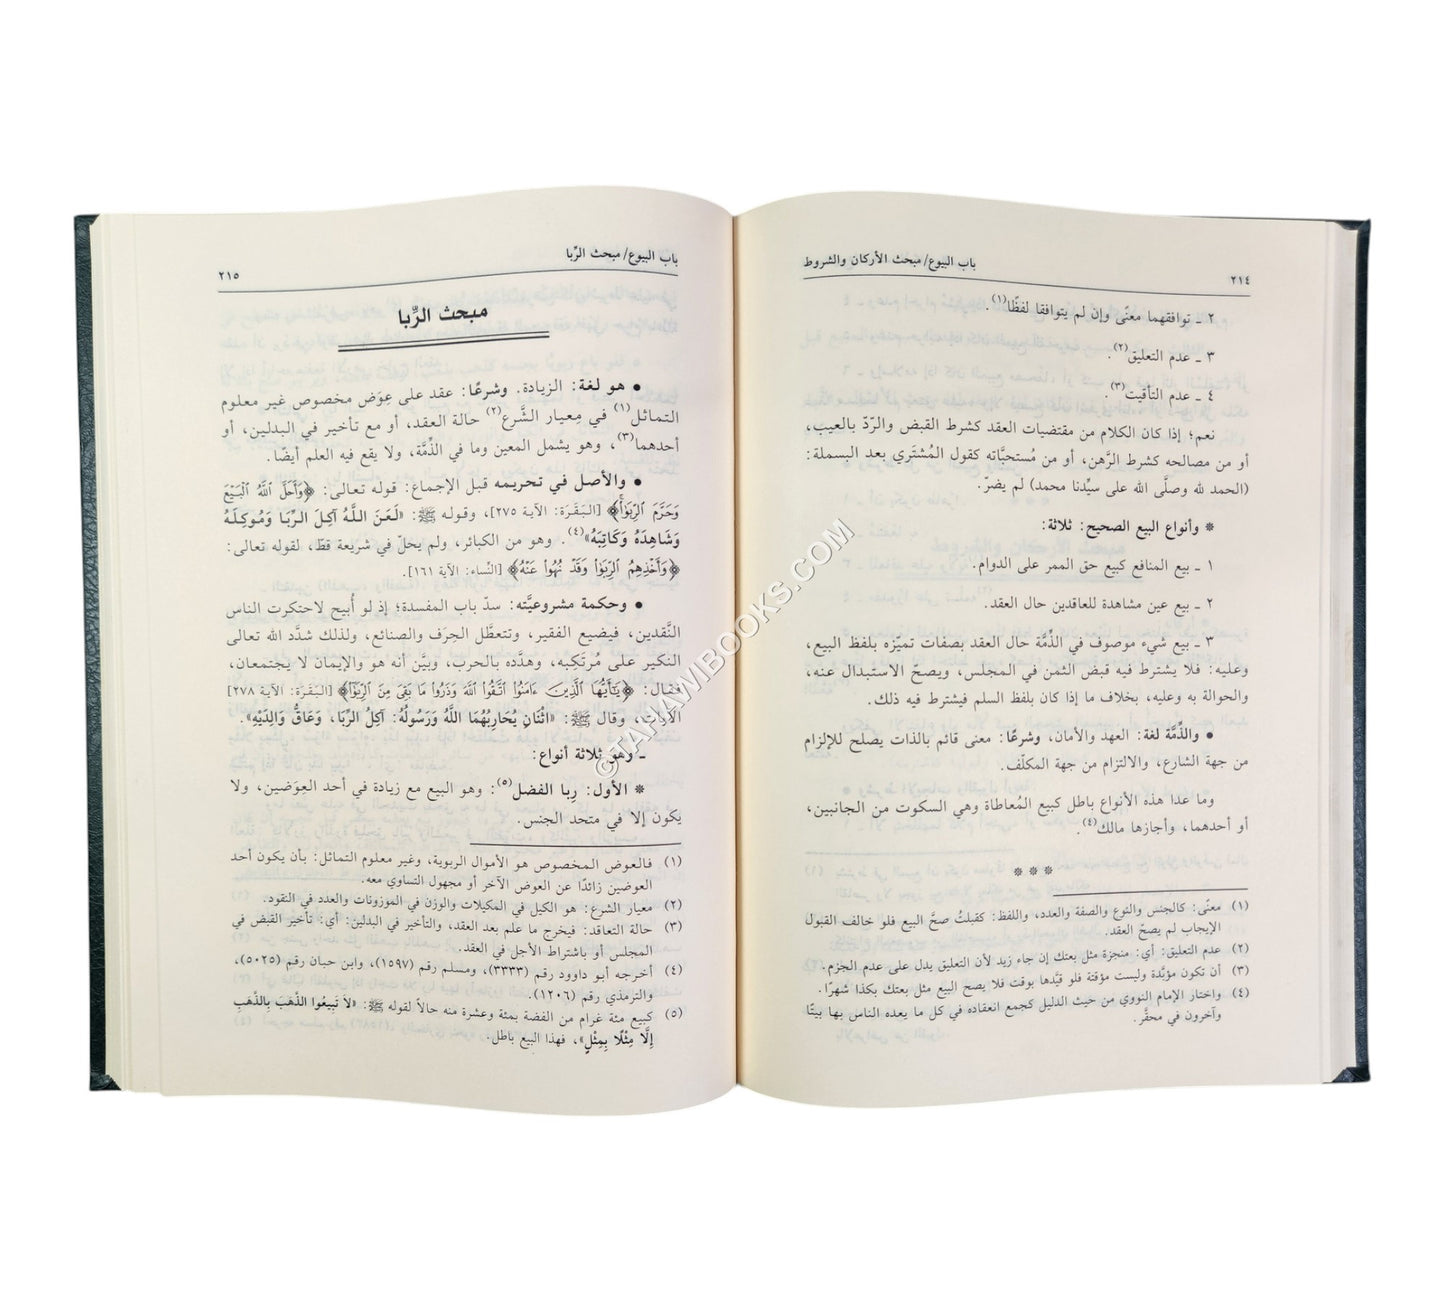 باب البيوع/ مبحث الأركان والشروط
٢١٤
٢ ـ توافقهما معنًى وإن لم يتوافقا لفظًا(١).
٣ ـ عدم التعليق(٢).
٤ ـ عدم التأقيت(٣).
نعم؛ إذا كان الكلام من مقتضيات العقد كشرط القبض والردّ بالعيب،
أو من مصالحه كشرط الرَّهن، أو من مُستحبَّاته كقول المُشتَري بعد البسملة:
(الحمد لله وصلَّى الله على سيِّدنا محمد) لم يضرّ.
* وأنواع البيع الصحيح: ثلاثة:
١ ـ بيع المنافع كبيع حق الممر على الدوام.
٢ ـ بيع عين مشاهدة للعاقدين حال العقد.
٣ ـ بيع شيء موصوف في الذِّمَّة حال العقد بصفات تميّزه بلفظ البيع،
وعليه: فلا يشترط فيه قبض الثمن في المجلس، ويصحّ الاستبدال عنه،
والحوالة به وعليه، بخلاف ما إذا كان بلفظ السلم فيشترط فيه ذلك.
• والذِّمَّة لغة: العهد والأمان، وشرعًا: معنى قائم بالذات يصلح للإلزام
من جهة الشارع، والالتزام من جهة المكلّف.
وما عدا هذه الأنواع باطل كبيع المُعاطاة وهي السكوت من الجانبين،
أو أحدهما، وأجازها مالك(٤).
* * *
(١) معنًى: كالجنس والنوع والصفة والعدد، واللفظ: كقبلتُ صحَّ البيع فلو خالف القبول
الإيجاب لم يصحّ العقد.
(٢) عدم التعليق: أي: منجزة مثل بعتك إن جاء زيد لأن التعليق يدل على عدم الجزم.
(٣) أن تكون مؤبَّدة وليست مؤقتة فلو قيَّدها بوقت فلا يصح البيع مثل بعتك بكذا شهرًا.
(٤) واختار الإمام النووي من حيث الدليل كجمع انعقاده في كل ما يعده الناس بها بيعًا
وآخرون في محقَّر.
باب البيوع/ مبحث الرِّبا
٢١٥
مبحث الرِّبا
• هو لغة: الزيادة. وشرعًا: عقد على عِوَض مخصوص غير معلوم
التماثل(١) في مِعيار الشَّرع(٢) حالة العقد، أو مع تأخير في البدلين، أو
أحدهما(٣)، وهو يشمل المعين وما في الذِّمَّة، ولا يقع فيه العلم أيضًا.
• والأصل في تحريمه قبل الإجماع: قوله تعالى: ﴿وَأَحَلَّ ٱللَّهُ ٱلْبَيْعَ
وَحَرَّمَ ٱلرِّبَوٰا۟﴾ [البَقَرَة: الآية ٢٧٥]، وقوله ﷺ: «لَعَنَ اللَّهُ آكِلَ الرِّبَا وَمُوكِلَهُ
وَشَاهِدَهُ وَكَاتِبَهُ»(٤). وهو من الكبائر، ولم يحلّ في شريعة قطّ، لقوله تعالى:
﴿وَأَخْذِهِمُ ٱلرِّبَوٰا۟ وَقَدْ نُهُوا۟ عَنْهُ﴾ [النِّساء: الآية ١٦١].
• وحكمة مشروعيَّته: سدّ باب المفسدة؛ إذ لو أُبيح لاحتكرت الناس
النَّقدين، فيضيع الفقير، وتتعطَّل الحِرَف والصنائع، ولذلك شدَّد الله تعالى
النكير على مُرتَكِبه، وهدَّده بالحرب، وبيَّن أنه هو والإيمان لا يجتمعان،
فقال: ﴿يَـٰٓأَيُّهَا ٱلَّذِينَ ءَامَنُوا۟ ٱتَّقُوا۟ ٱللَّهَ وَذَرُوا۟ مَا بَقِىَ مِنَ ٱلرِّبَوٰٓا۟﴾ [البَقَرَة: الآية ٢٧٨]
الآيات، وقال ﷺ: «اثْنَانِ يُحَارِبُهُمَا اللَّهُ وَرَسُولُهُ: آكِلُ الرِّبَا، وَعَاقُّ وَالِدَيْهِ».
ـ وهو ثلاثة أنواع:
* الأول: رِبا الفضل(٥): وهو البيع مع زيادة في أحد العِوَضين، ولا
يكون إلا في متحد الجنس.
(١) فالعوض المخصوص هو الأموال الربوية، وغير معلوم التماثل: بأن يكون أحد
العوضين زائدًا عن العوض الآخر أو مجهول التساوي معه.
(٢) معيار الشرع: هو الكيل في المكيلات والوزن في الموزونات والعدد في النقود.
(٣) حالة التعاقد: فيخرج ما علم بعد العقد، والتأخير في البدلين: أي: تأخير القبض في
المجلس أو باشتراط الأجل في العقد.
(٤) أخرجه أبو داوود رقم (٣٣٣٣)، ومسلم رقم (١٥٩٧)، وابن حبان رقم (٥٠٢٥)،
والترمذي رقم (١٢٠٦).
(٥) كبيع مئة غرام من الفضة بمئة وعشرة منه حالاً لقوله ﷺ: «لاَ تَبِيعُوا الذَّهَبَ بِالذَّهَبِ
إِلَّا مِثْلًا بِمِثْلٍ»، فهذا البيع باطل.
©TANAWIBOOKS.COM